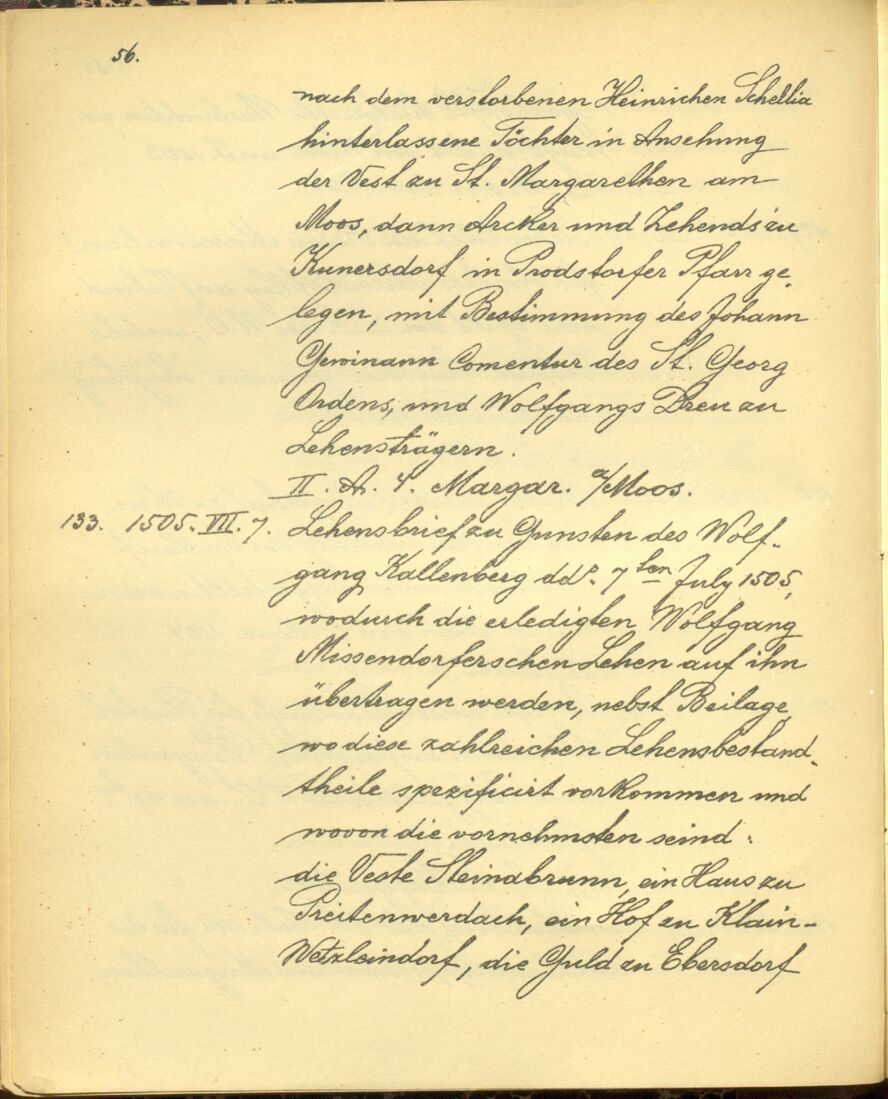 56.
nach dem verstorbenen Heinrichen Schellia
hinterlassene Töchter in Ansehung
der Vest zu St. Margarethen am
Moos, dann Arcker und Zehends zu
Kunersdorf in Prodstorfer Pfarr ge-
legen, mit Bestimmung des Johann
Gewinann Comentur des St. Georg
Ordens, und Wolfgangs Dreu zu
Lehensträgern.
II. A. 4. Margar. a/Moos.
133. 1505. VII. 7. Lehensbrief zu Gunsten des Wolf-
gang Kallenberg ddº 7ten July 1505,
wodurch die erledigten Wolfgang
Missendorferschen Lehen auf ihn
übertragen werden, nebst Beilage,
wo diese zahlreichen Lehensbestand-
theile spezificirt vorkommen und
wovon die vornehmsten seind:
die Veste Steinabrunn, ein Haus zu
Preitenwerdach, ein Hof zu Klain-
Wetzleindorf, die Guld zu Ebersdorf